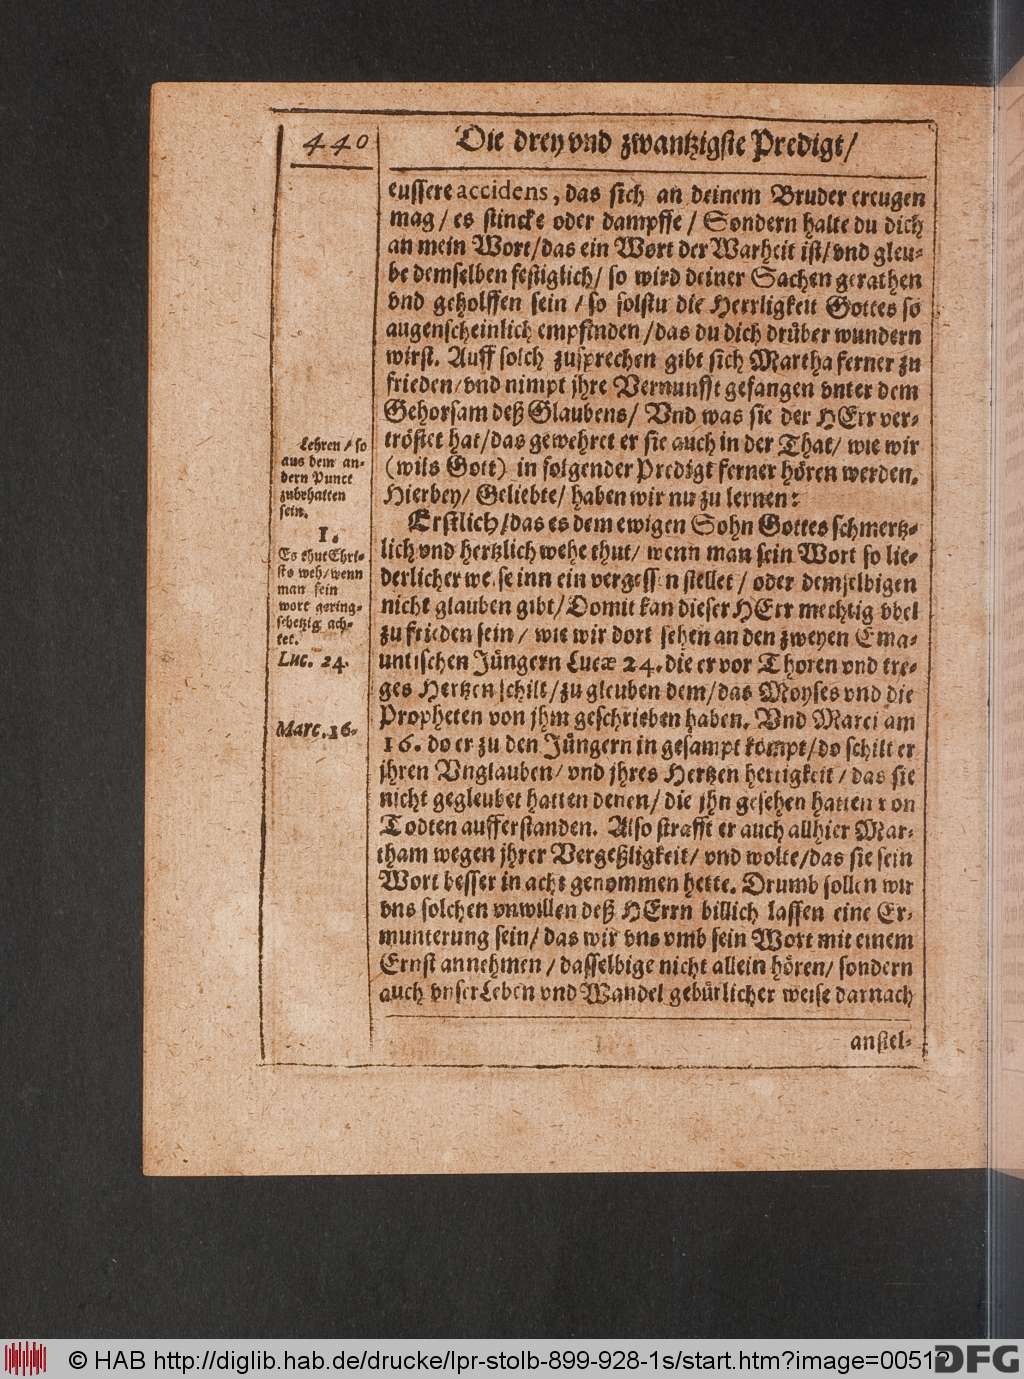 440
Die drey vnd zwantzigste Predigt/
eussere accidens, das sich an deinem Bruder ereugen
mag/ es stincke oder dampffe/ Sondern halte du dich
an mein Wort/das ein Wort der Warheit ist/vnd gleu-
be demselben festiglich/ so wird deiner Sachen gerathen
vnd geholffen sein/ so solstu die Herrligkeit Gottes so
augenscheinlich empfinden/das du dich drüber wundern
wirst. Auff solch zusprechen gibt sich Martha ferner zu
frieden/vnd nimpt jhre Vernunfft gefangen vnter dem
Gehorsam deß Glaubens/ Vnd was sie der HErr ver-
tröstet hat/das gewehret er sie auch in der That/ wie wir
(wils Gott) in folgender Predigt ferner hören werden.
Hierbey/ Geliebte/ haben wir nu zu lernen:
Lehren/ so
aus dem an-
dern Punct
zubehalten
sein.
1.
Es thut Chri-
sto weh/wenn
man sein
wort gering-
schetzig ach-
tet.
Luc. 24.
Marc. 16.
Erstlich/das es dem ewigen Sohn Gottes schmertz-
lich vnd hertzlich wehe thut/ wenn man sein Wort so lie-
derlicher weise inn ein vergessen stellet/ oder demselbigen
nicht glauben gibt/Domit kan dieser HErr mechtig vbel
zu frieden sein/ wie wir dort sehen an den zweyen Ema-
untischen Jüngern Lucæ 24. die er vor Thoren vnd tre-
ges Hertzen schilt/zu gleuben dem/das Moyses vnd die
Propheten von jhm geschrieben haben. Vnd Marci am
16. do er zu den Jüngern in gesampt kömpt/do schilt er
jhren Vnglauben/ vnd jhres Hertzen hertigkeit/ das sie
nicht gegleubet hatten denen/ die jhn gesehen hatten von
Todten aufferstanden. Also strafft er auch allhier Mar-
tham wegen jhrer Vergeßligkeit/ vnd wolte/das sie sein
Wort besser in acht genommen hette. Drumb sollen wir
vns solchen vnwillen deß HErrn billich lassen eine Er-
munterung sein/ das wir vns vmb sein Wort mit einem
Ernst annehmen/ dasselbige nicht allein hören/ sondern
auch vnser Leben vnd Wandel gebürlicher weise darnach
anstel-
© HAB http://diglib.hab.de/drucke/lpr-stolb-899-928-1s/start.htm?image=00512
DFG